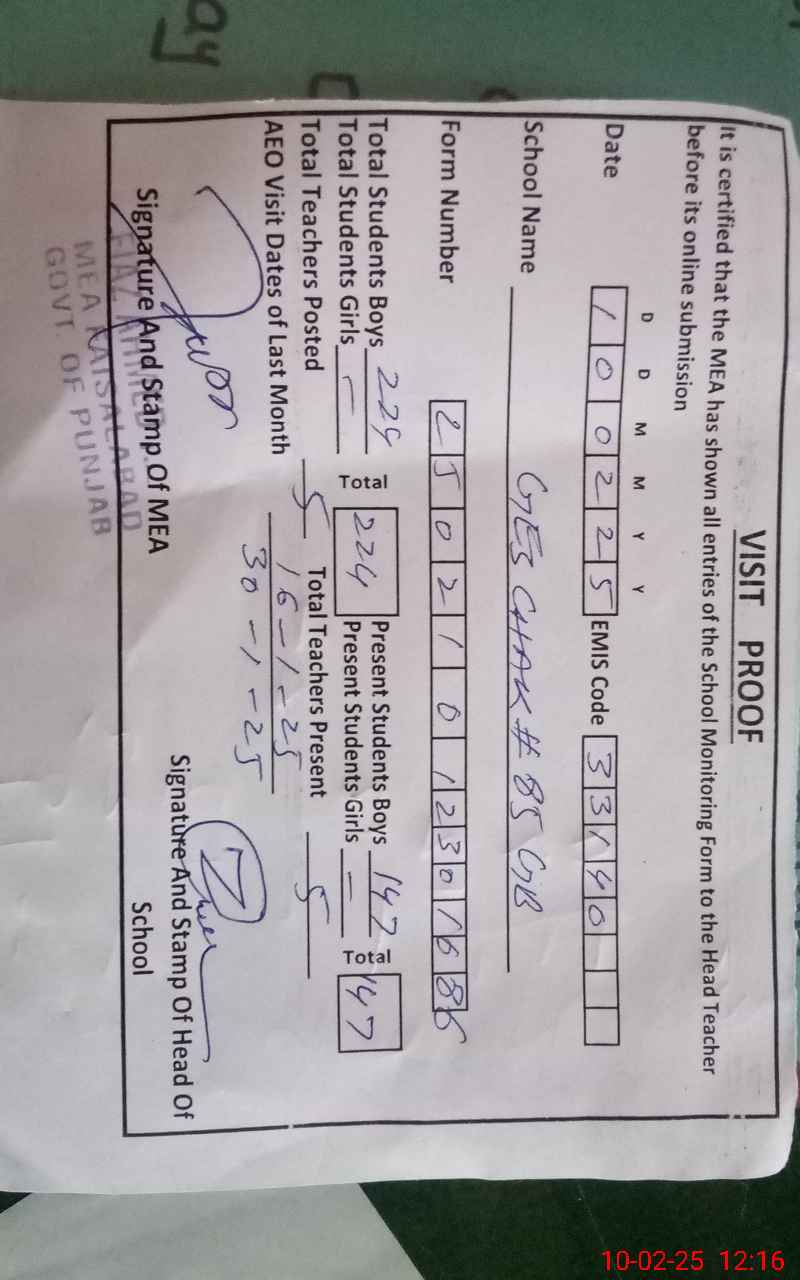 VISIT PROOF
It is certified that the MEA has shown all entries of the School Monitoring Form to the Head Teacher
before its online submission
D D M M Y Y
Date 1 0 0 2 2 5 EMIS Code 3 3 1 4 0
School Name GES CHAK # 85 GB
Form Number 2 5 0 2 1 0 1 2 3 0 1 6 8
Total Students Boys 224 Total 224 Present Students Boys 147 Total 147
Total Students Girls – Present Students Girls –
Total Teachers Posted 5 Total Teachers Present 5
AEO Visit Dates of Last Month 16-1-25
30-1-25
Signature And Stamp Of MEA
Signature And Stamp Of Head Of
School
MEA FAISALABAD
GOVT. OF PUNJAB
ay
10-02-25 12:16